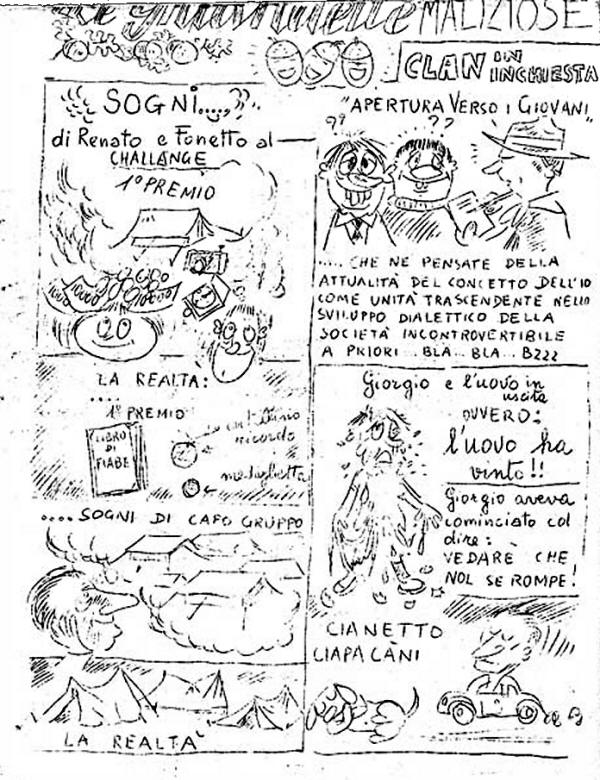 MALIZIOSE
CLAN IN
INCHIESTA
SOGNI.....??..
di Renato e Fanetto al
CHALLANGE
1° PREMIO
LA REALTÀ:
....
1° PREMIO
LIBRO
DI
FIABE
ricordo
medaglietta
....SOGNI DI CAPO GRUPPO
LA REALTA'
"APERTURA VERSO I GIOVANI"
?? ??
..... CHE NE PENSATE DELLA
ATTUALITÀ DEL CONCETTO DELL'IO
COME UNITÀ TRASCENDENTE NELLO
SVILUPPO DIALETTICO DELLA
SOCIETÀ INCONTROVERTIBILE
A PRIORI... BLÀ... BLA... BZZZ
Giorgio e l'uovo in
uscita
OVVERO:
l'uovo ha
vinto!!
Giorgio aveva
cominciato col
dire:
VEDARE CHE
NOL SE ROMPE!
CIANETTO
CIAPACANI